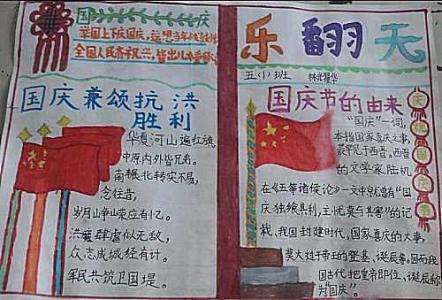 国庆
举国上下庆国庆,
全国人民齐祝
国庆兼颂抗洪
胜利
华夏河山遍红旗
中原内外皆兄弟。
南粮北转实不易,
念往昔,
岁月山争山荣应有忆。
洪魔肆虐似无敌,
众志成城经有计。
军民共筑卫国堤。
乐翻天
五(1)班
国庆节的由来
“国庆”一词,
本指国家喜庆之事,
最早见于西晋。西晋
的文学家陆机
在《五等诸侯论》一文中就曾有“国
庆独飨其利,主忧莫与其害”的记
载、我国封建时代、国家喜庆的大事,
莫大过于帝王的登基、诞辰
国古代把皇帝即位、诞辰称
为“国庆”。